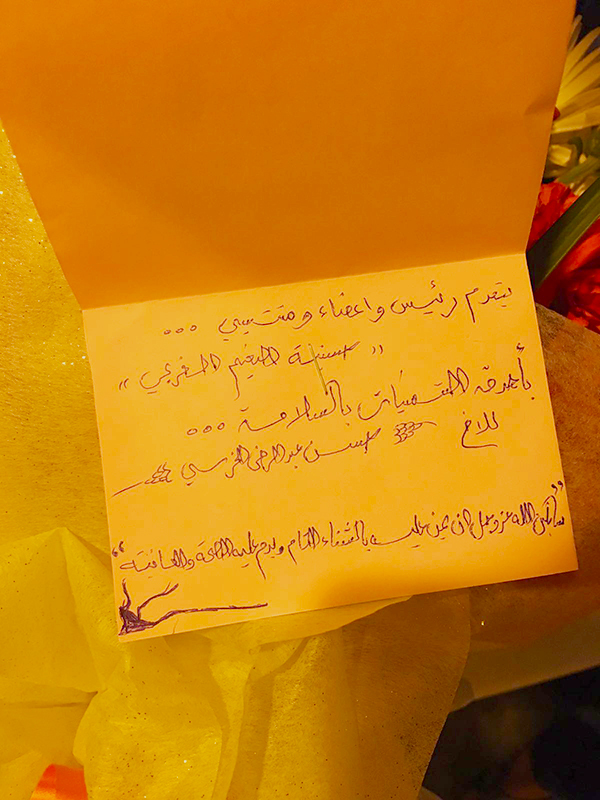 يتقدم رئيس واعضاء ومنتسبي ...
" حسينية النعيم الغربي "
بأصدق التمنيات بالسلامة ...
للاخ حسن عبد الرضى
" سائلين الله عز وجل ان يمن عليه بالشفاء التام ويديم عليه الصحة والعافية "